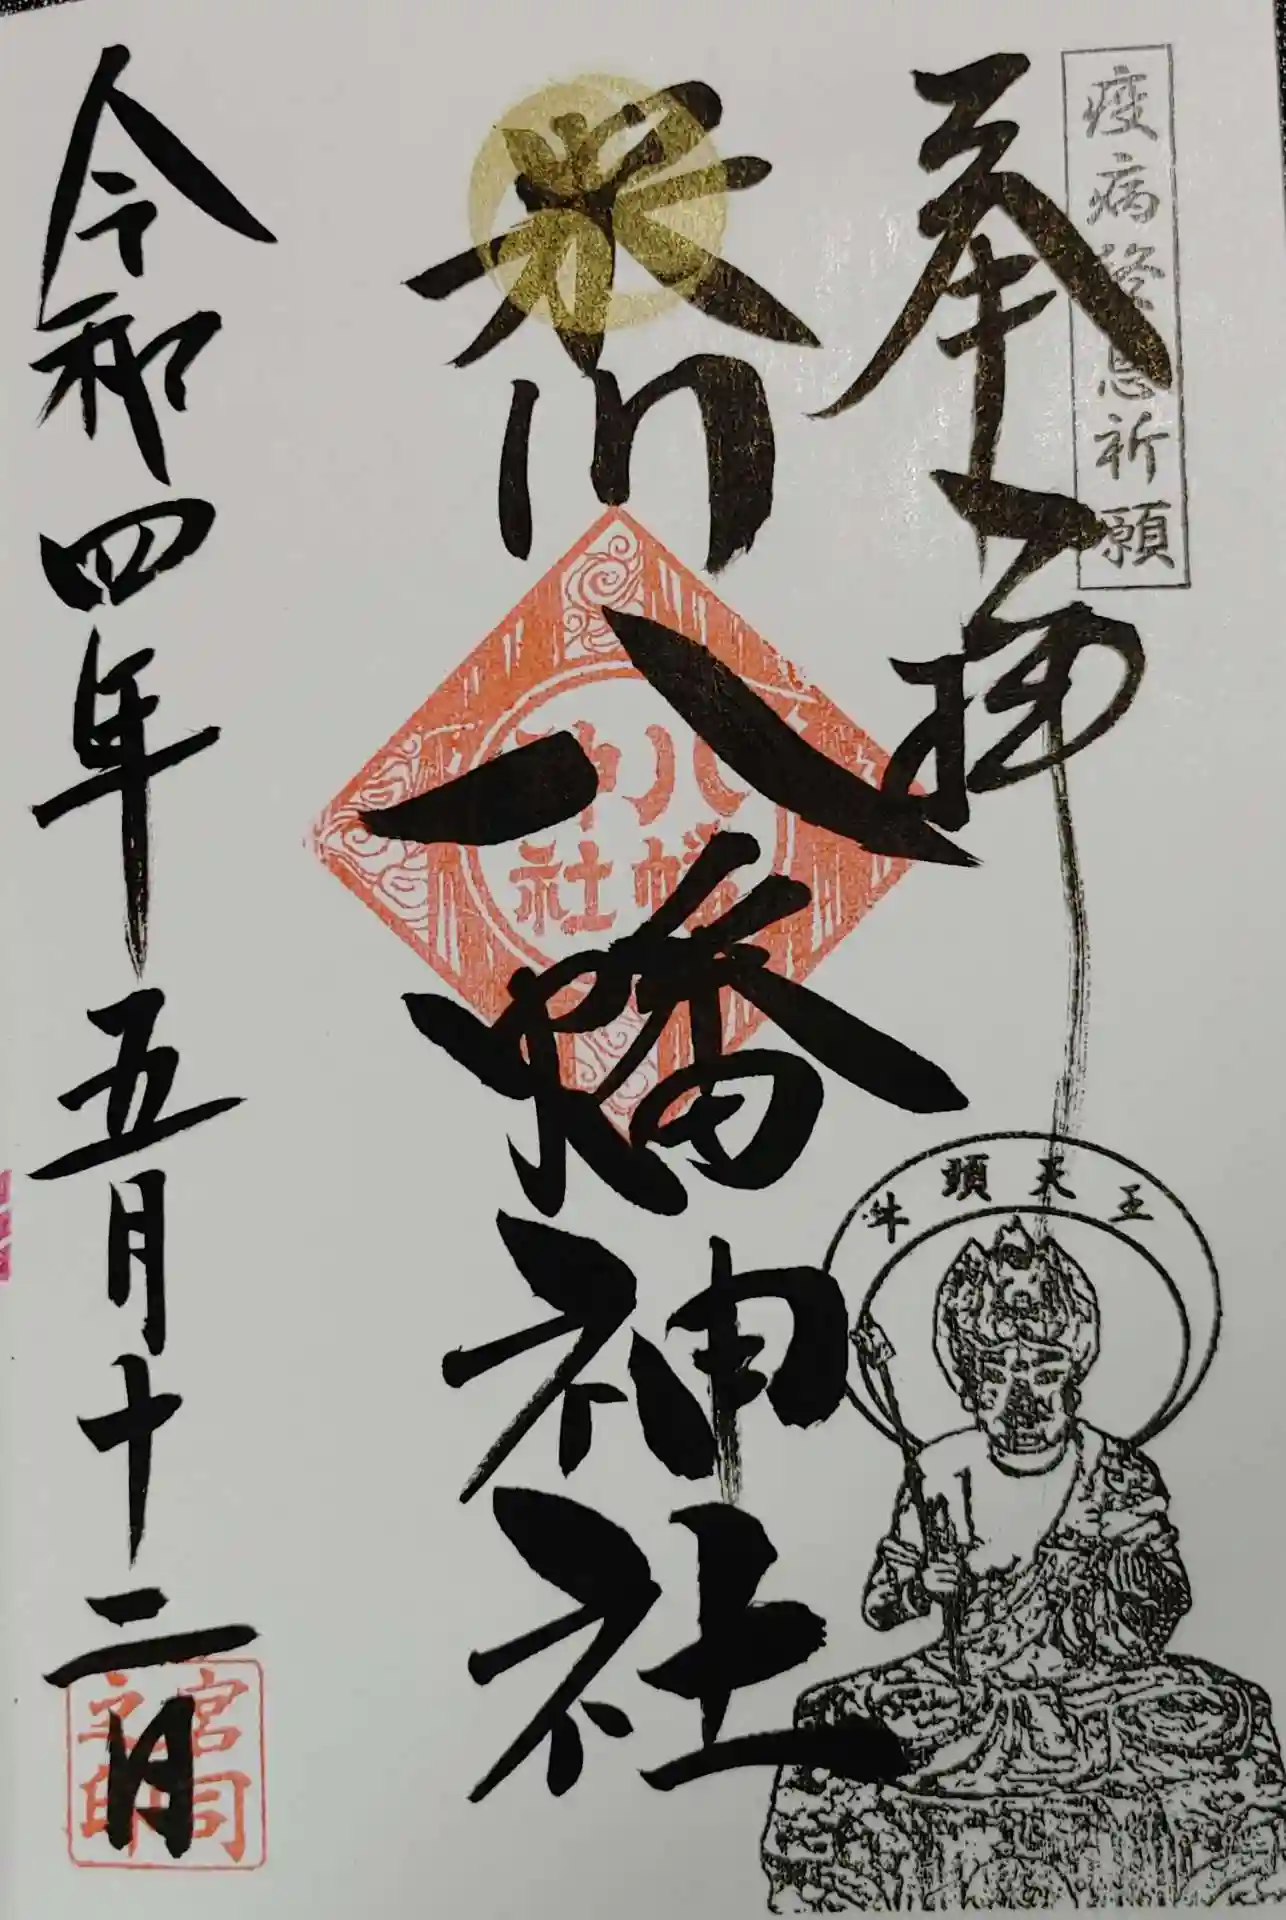 疫病終息祈願
奉拝
牛頭天王
米川八幡神社
八幡
神社
令和四年五月十二日
宮司
之印